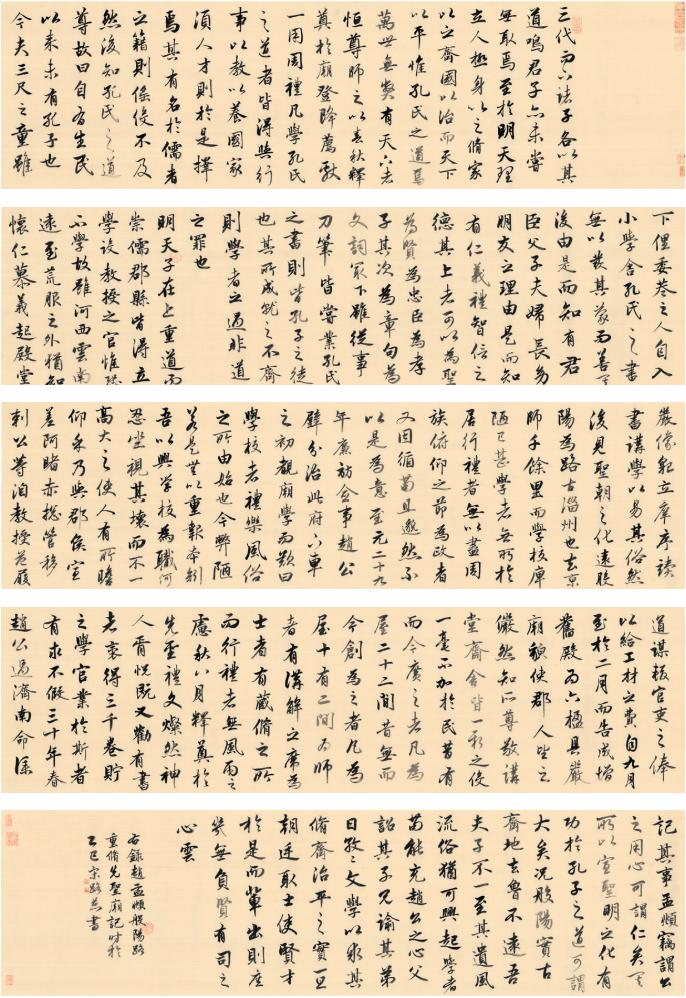 三代而下諸子各以其
道鳴君子亦未嘗
無取焉至於明天理
立人極身以之脩家
以之齊國以治而天下
以平惟孔氏之道焉
萬世無獘有天下者
恒尊師之以春秋釋
奠於廟登降薦獻
一用周禮凡學孔氏
之道者皆得與行
事以教以養國家
須人才則於是擇
焉其有名於儒者
之籍則徭役不及
然後知孔氏之道
尊故曰自有生民
以來未有孔子也
今夫三尺之童雖
下俚委巷之人自入
小學舍孔氏之書
無以發其蒙而善其
後由是而知有君
臣父子夫婦長幼
朋友之理由是而知
有仁義禮智信之
德其上者可以為聖
為賢為忠臣為孝
子其次為章句為
文詞冣下雖從事
刀筆皆嘗業孔氏
之書則皆孔子之徒
也其所成就之不齊
則學者之過非道
之罪也
明天子在上重道而
崇儒郡縣皆得立
學設教授之官惟恐
不學故雖河西雲南
遠至荒服之外猶知
懷仁慕義起殿堂
嚴像配立庠序讀
書講學以易其俗然
後見聖朝之化遠般
陽為路古淄州也去京
師千餘里而學校庳
陋已甚學者無所於
居行禮者無以盡周
旋俯仰之節為政者
又因循苟且邈然不
以是為意至元二十九
年廉訪僉事趙公
壁分治此府下車
之初觀廟學而歎曰
學校者禮樂風俗
之所由始也今弊陋
若是無以重報本
吾以興學校為職何
忍坐視其壞而不一
高大之使人有所瞻
仰乎乃與郡侯宣
差阿睹赤總管移
剌公等洎教授范履
道謀板官吏之俸
以給工材之費自九月
至於二月而告成增
舊殿為六楹具嚴
廟貌使郡人望之
儼然知所尊敬講
堂齋舍皆一新之役
一毫不加於民昔有
而今廣之者凡為
屋二十二間昔無而
今創為之者凡為
屋十有二間為師
者有講解之席為
士者有藏脩之所
而行禮者無風雨之
慮秋八月釋奠於
先聖禮文燦然神
人胥悅既又勸有書
者裒得三千卷貯
之學官業於斯者
有求不假三十年春
趙公過濟南命僕
記其事孟頫竊謂公
之用心可謂仁矣其
所以宣聖明之化有
功於孔子之道可謂
大矣況般陽實古
齊地去魯不遠吾
夫子不一至其遺風
流俗猶可興起學者
苟能充趙公之心父
詔其子兄諭其弟
日孜孜文學以求其
脩齊治平之實一旦
朝廷取士使賢才
於是而輩出則庶
幾無負賢有司之
心雲
右錄趙孟頫般陽路
重脩先聖廟記時於
乙巳宗路燕書